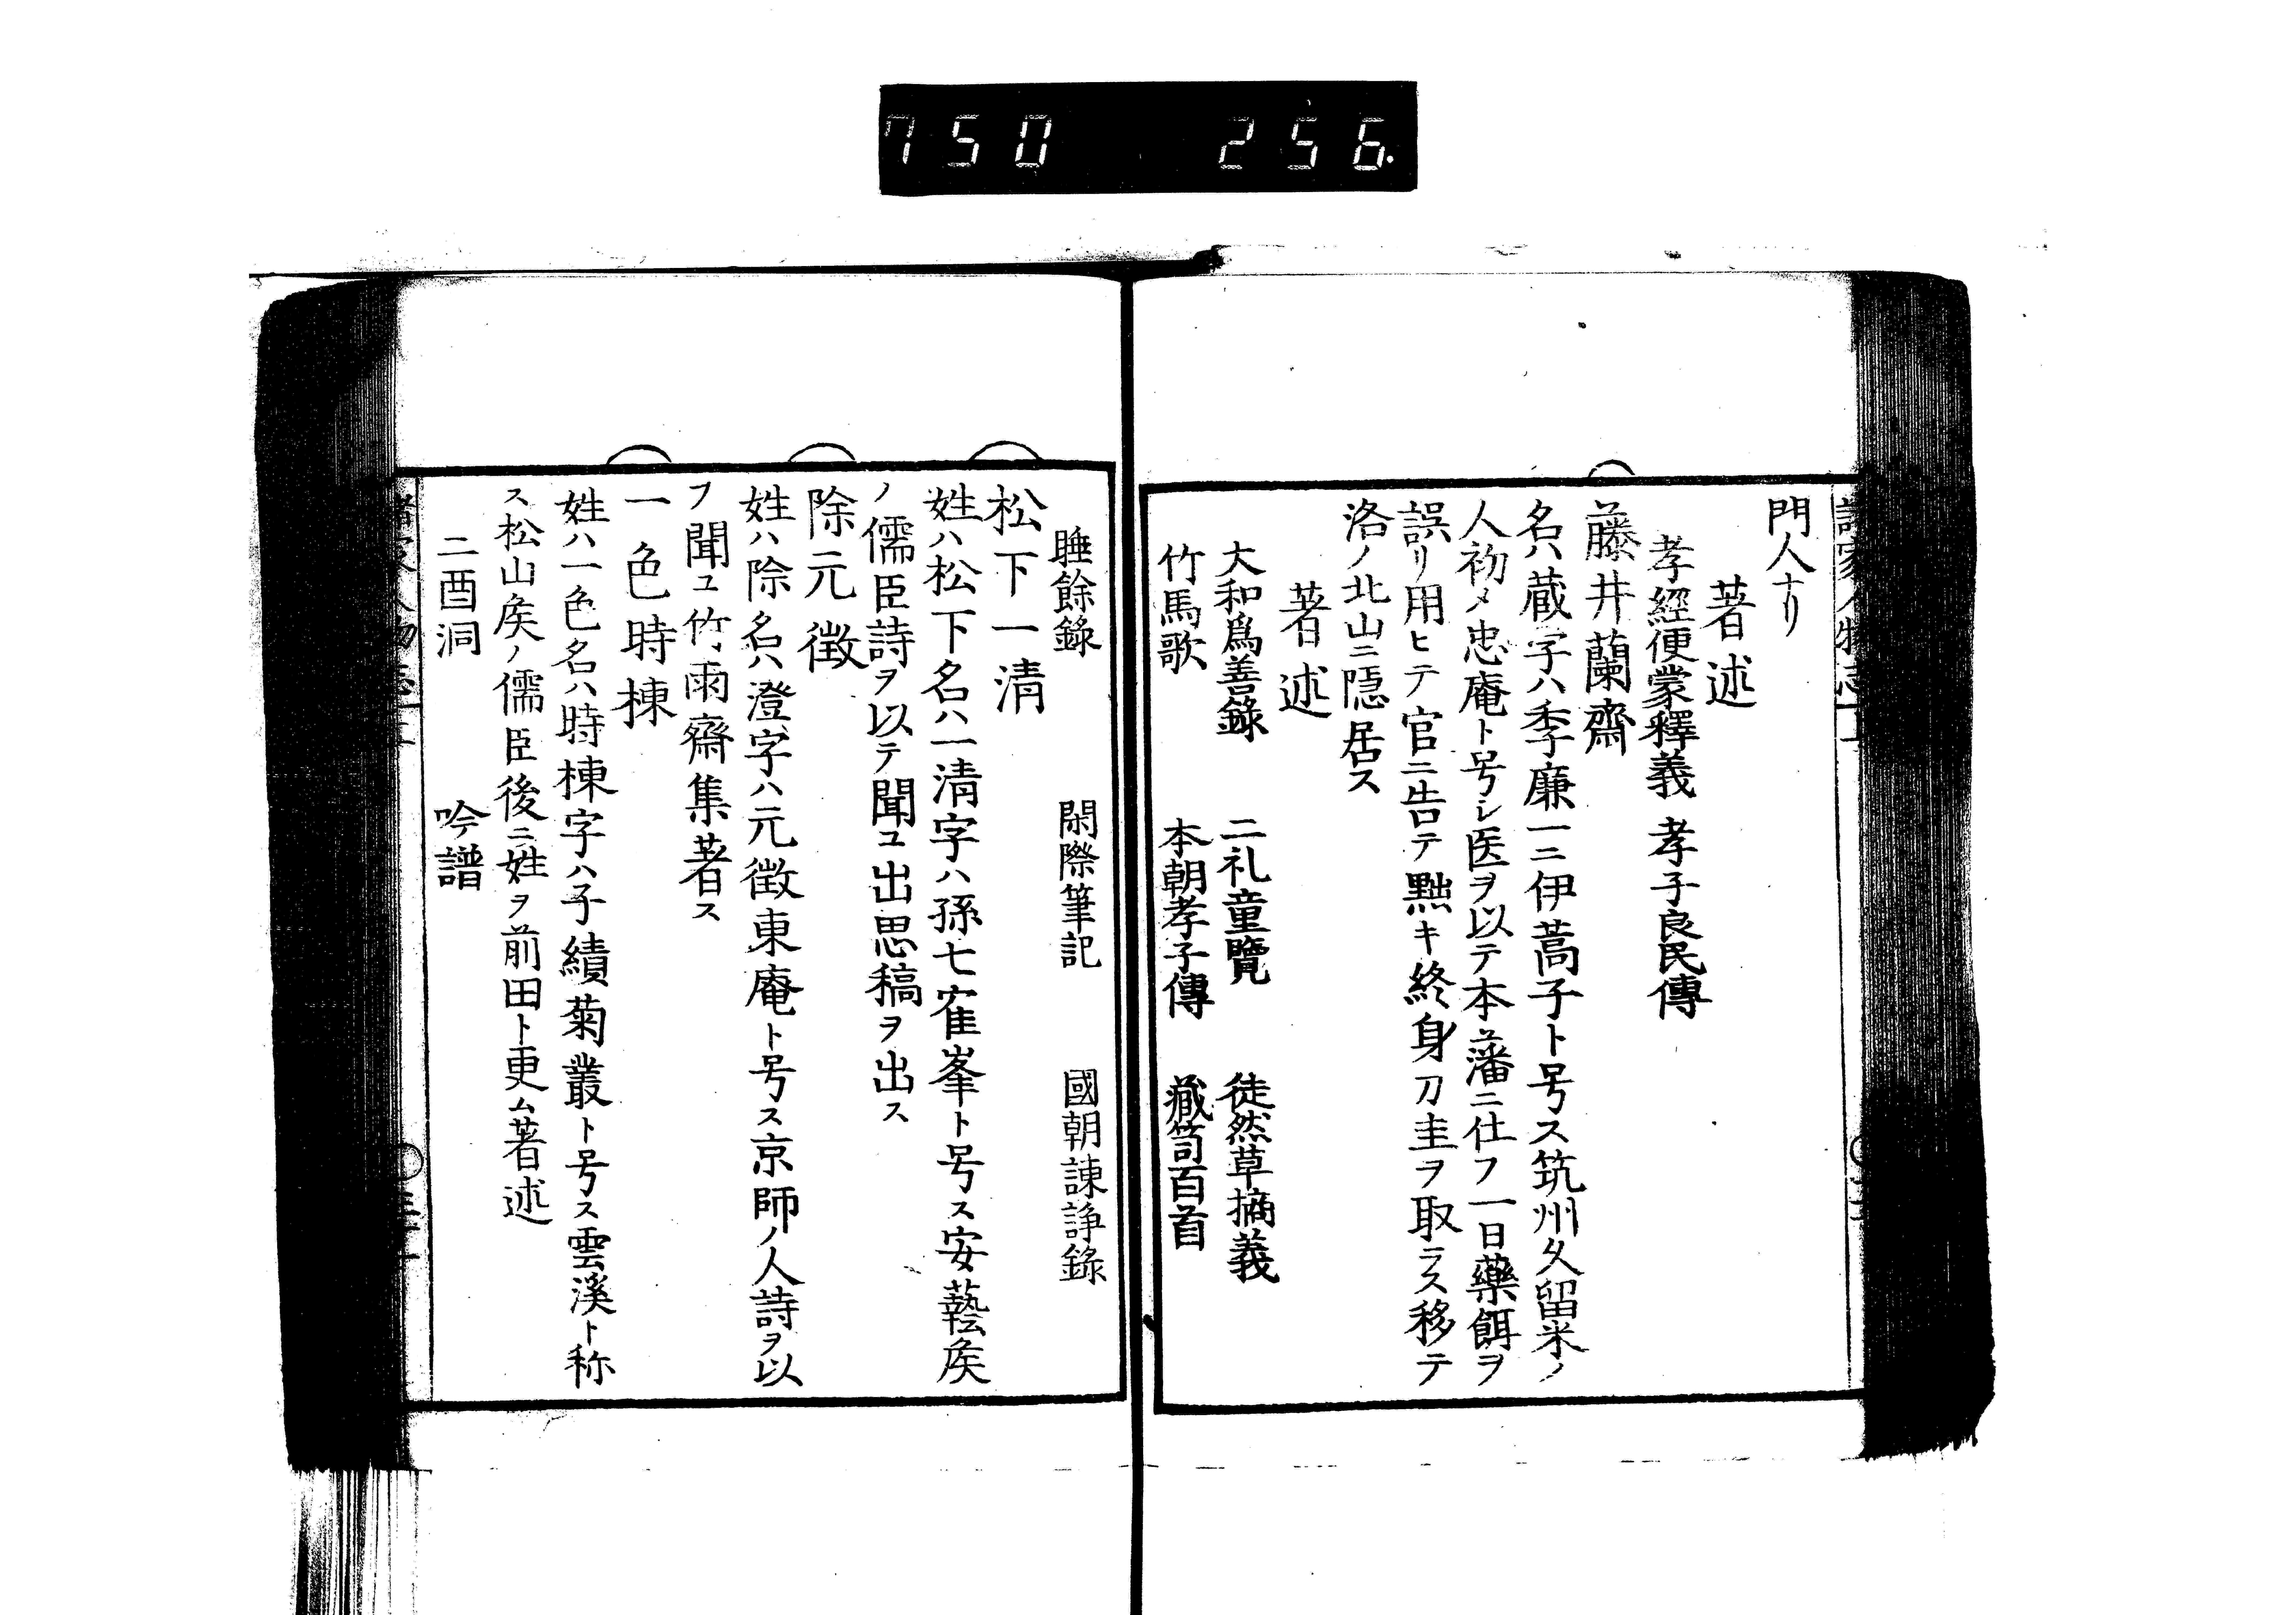 750 256.
門人ナリ
著述
孝經便蒙釋義 孝子良民傳
藤井蘭齋
名ハ蔵字ハ季廉一ニ伊蒿子ト号ス筑州久留米ノ
人初メ忠庵ト号シ医ヲ以テ本藩ニ仕フ一日藥餌ヲ
誤リ用ヒテ官ニ告テ黜キ終身刀圭ヲ取ラス移テ
洛ノ北山ニ隠居ス
著述
大和爲善錄 二礼童覽 徒然草摘義
竹馬歌 本朝孝子傳 藏笥百首
睡餘錄 閑際筆記 國朝諫諍錄
松下一清
姓ハ松下名ハ一清字ハ孫七寉峯ト号ス安藝矦
ノ儒臣詩ヲ以テ聞ユ出思稿ヲ出ス
除元徴
姓ハ除名ハ澄字ハ元徴東庵ト号ス京師ノ人詩ヲ以
ヲ聞ユ竹雨齋集著ス
一色時棟
姓ハ一色名ハ時棟字ハ子績菊叢ト号ス雲溪ト称
ス松山矦ノ儒臣後ニ姓ヲ前田ト更ム著述
二酉洞 吟譜